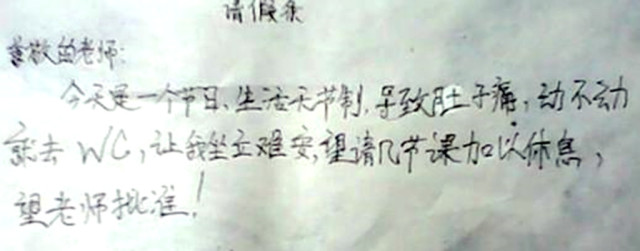 请假条
尊敬的老师:
今天是一个节日、生活无节制,导致肚子痛,动不动
就去WC,让我坐立难安,望请几节课加以休息,
望老师批准!